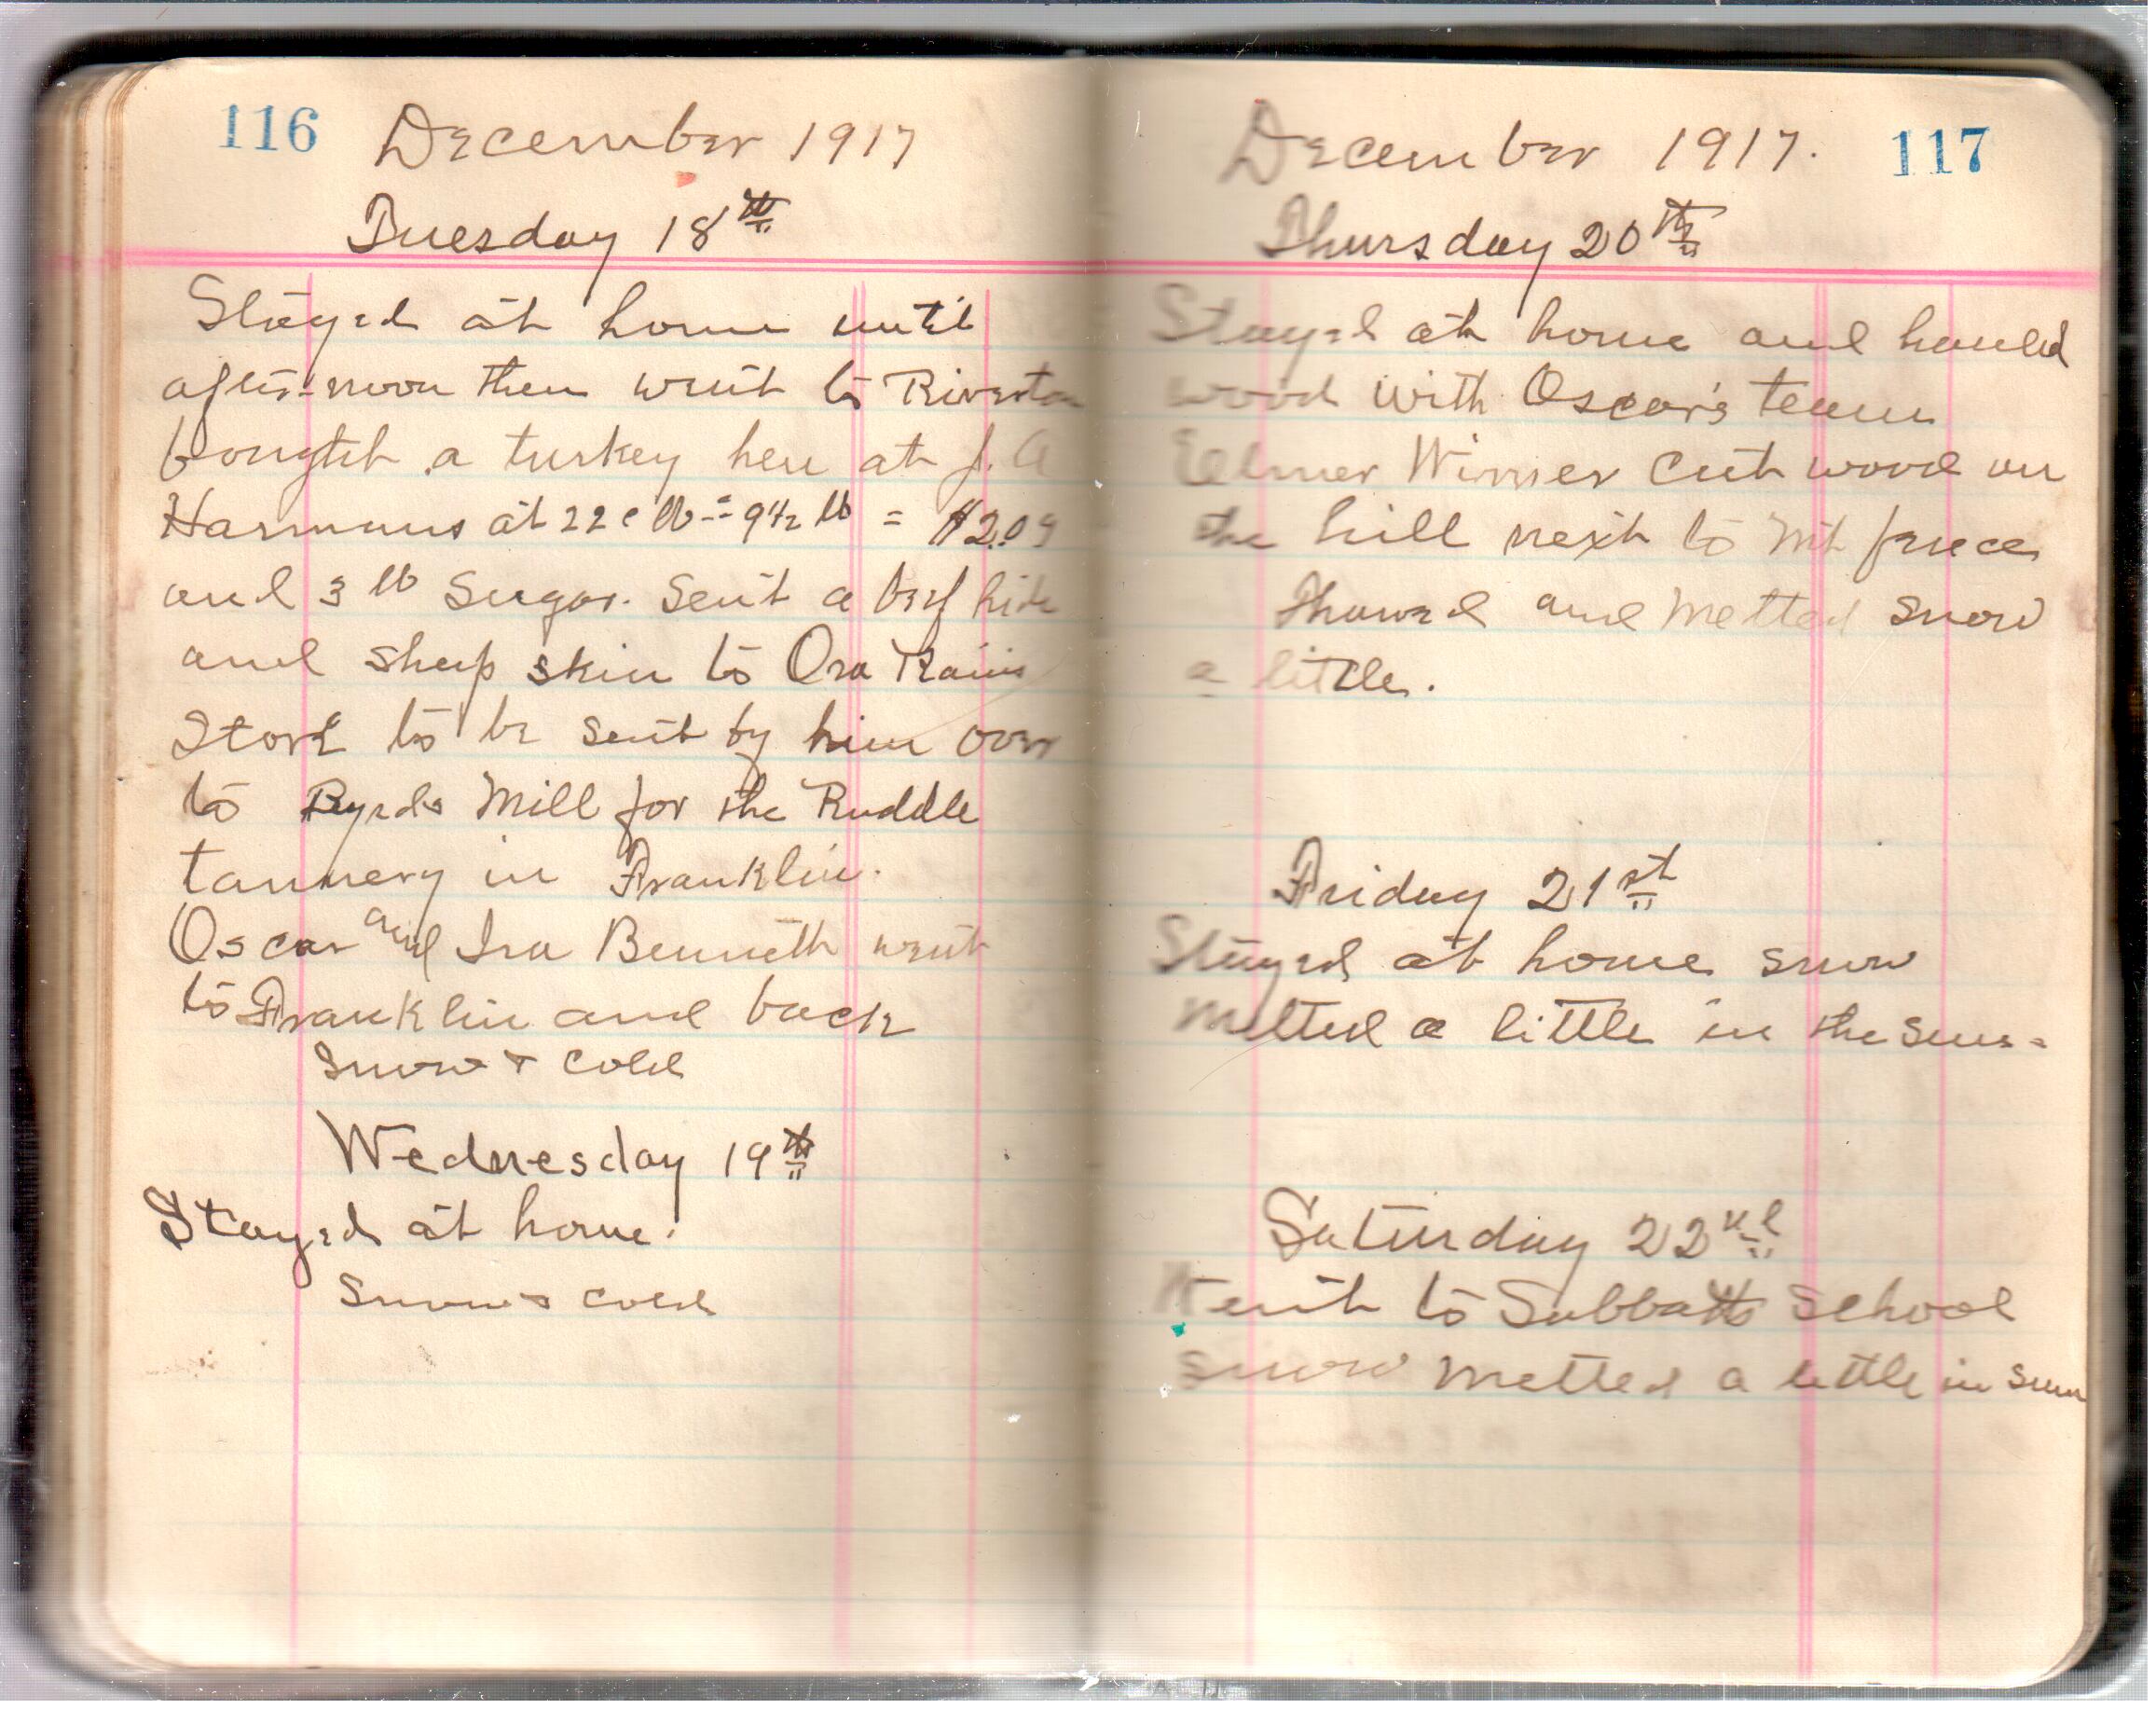 116 December 1917
Tuesday 18th
Stayed at home until
after-noon then went to Riverton
bought a turkey hen at J. A
Harmans at 22 c lb = 9 1/2 lb = $2.09
and 3 lb Sugar. Sent a beef hide
and sheep skin to Ora
Store to be sent by him over
to Byrds Mill for the Ruddle
tannery in Franklin.
Oscar and Ira Bennett went
to Franklin and back
Snow & cold
Wednesday 19th
Stayed at home.
Snow & cold
December 1917. 117
Thursday 20th
Stayed at home and hauled
wood with Oscar's team
Elmer Wimer cut wood on
the hill next to
Thawed and melted snow
a little.
Friday 21st
Stayed at home snow
melted a little in the sun.
Saturday 22nd
Went to Sabbath School
snow melted a little in sun